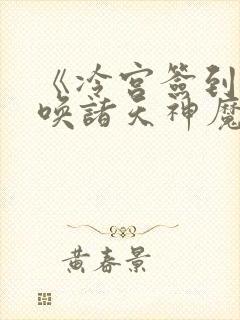 《冷宫签到
唤诸天神魔
黄春景